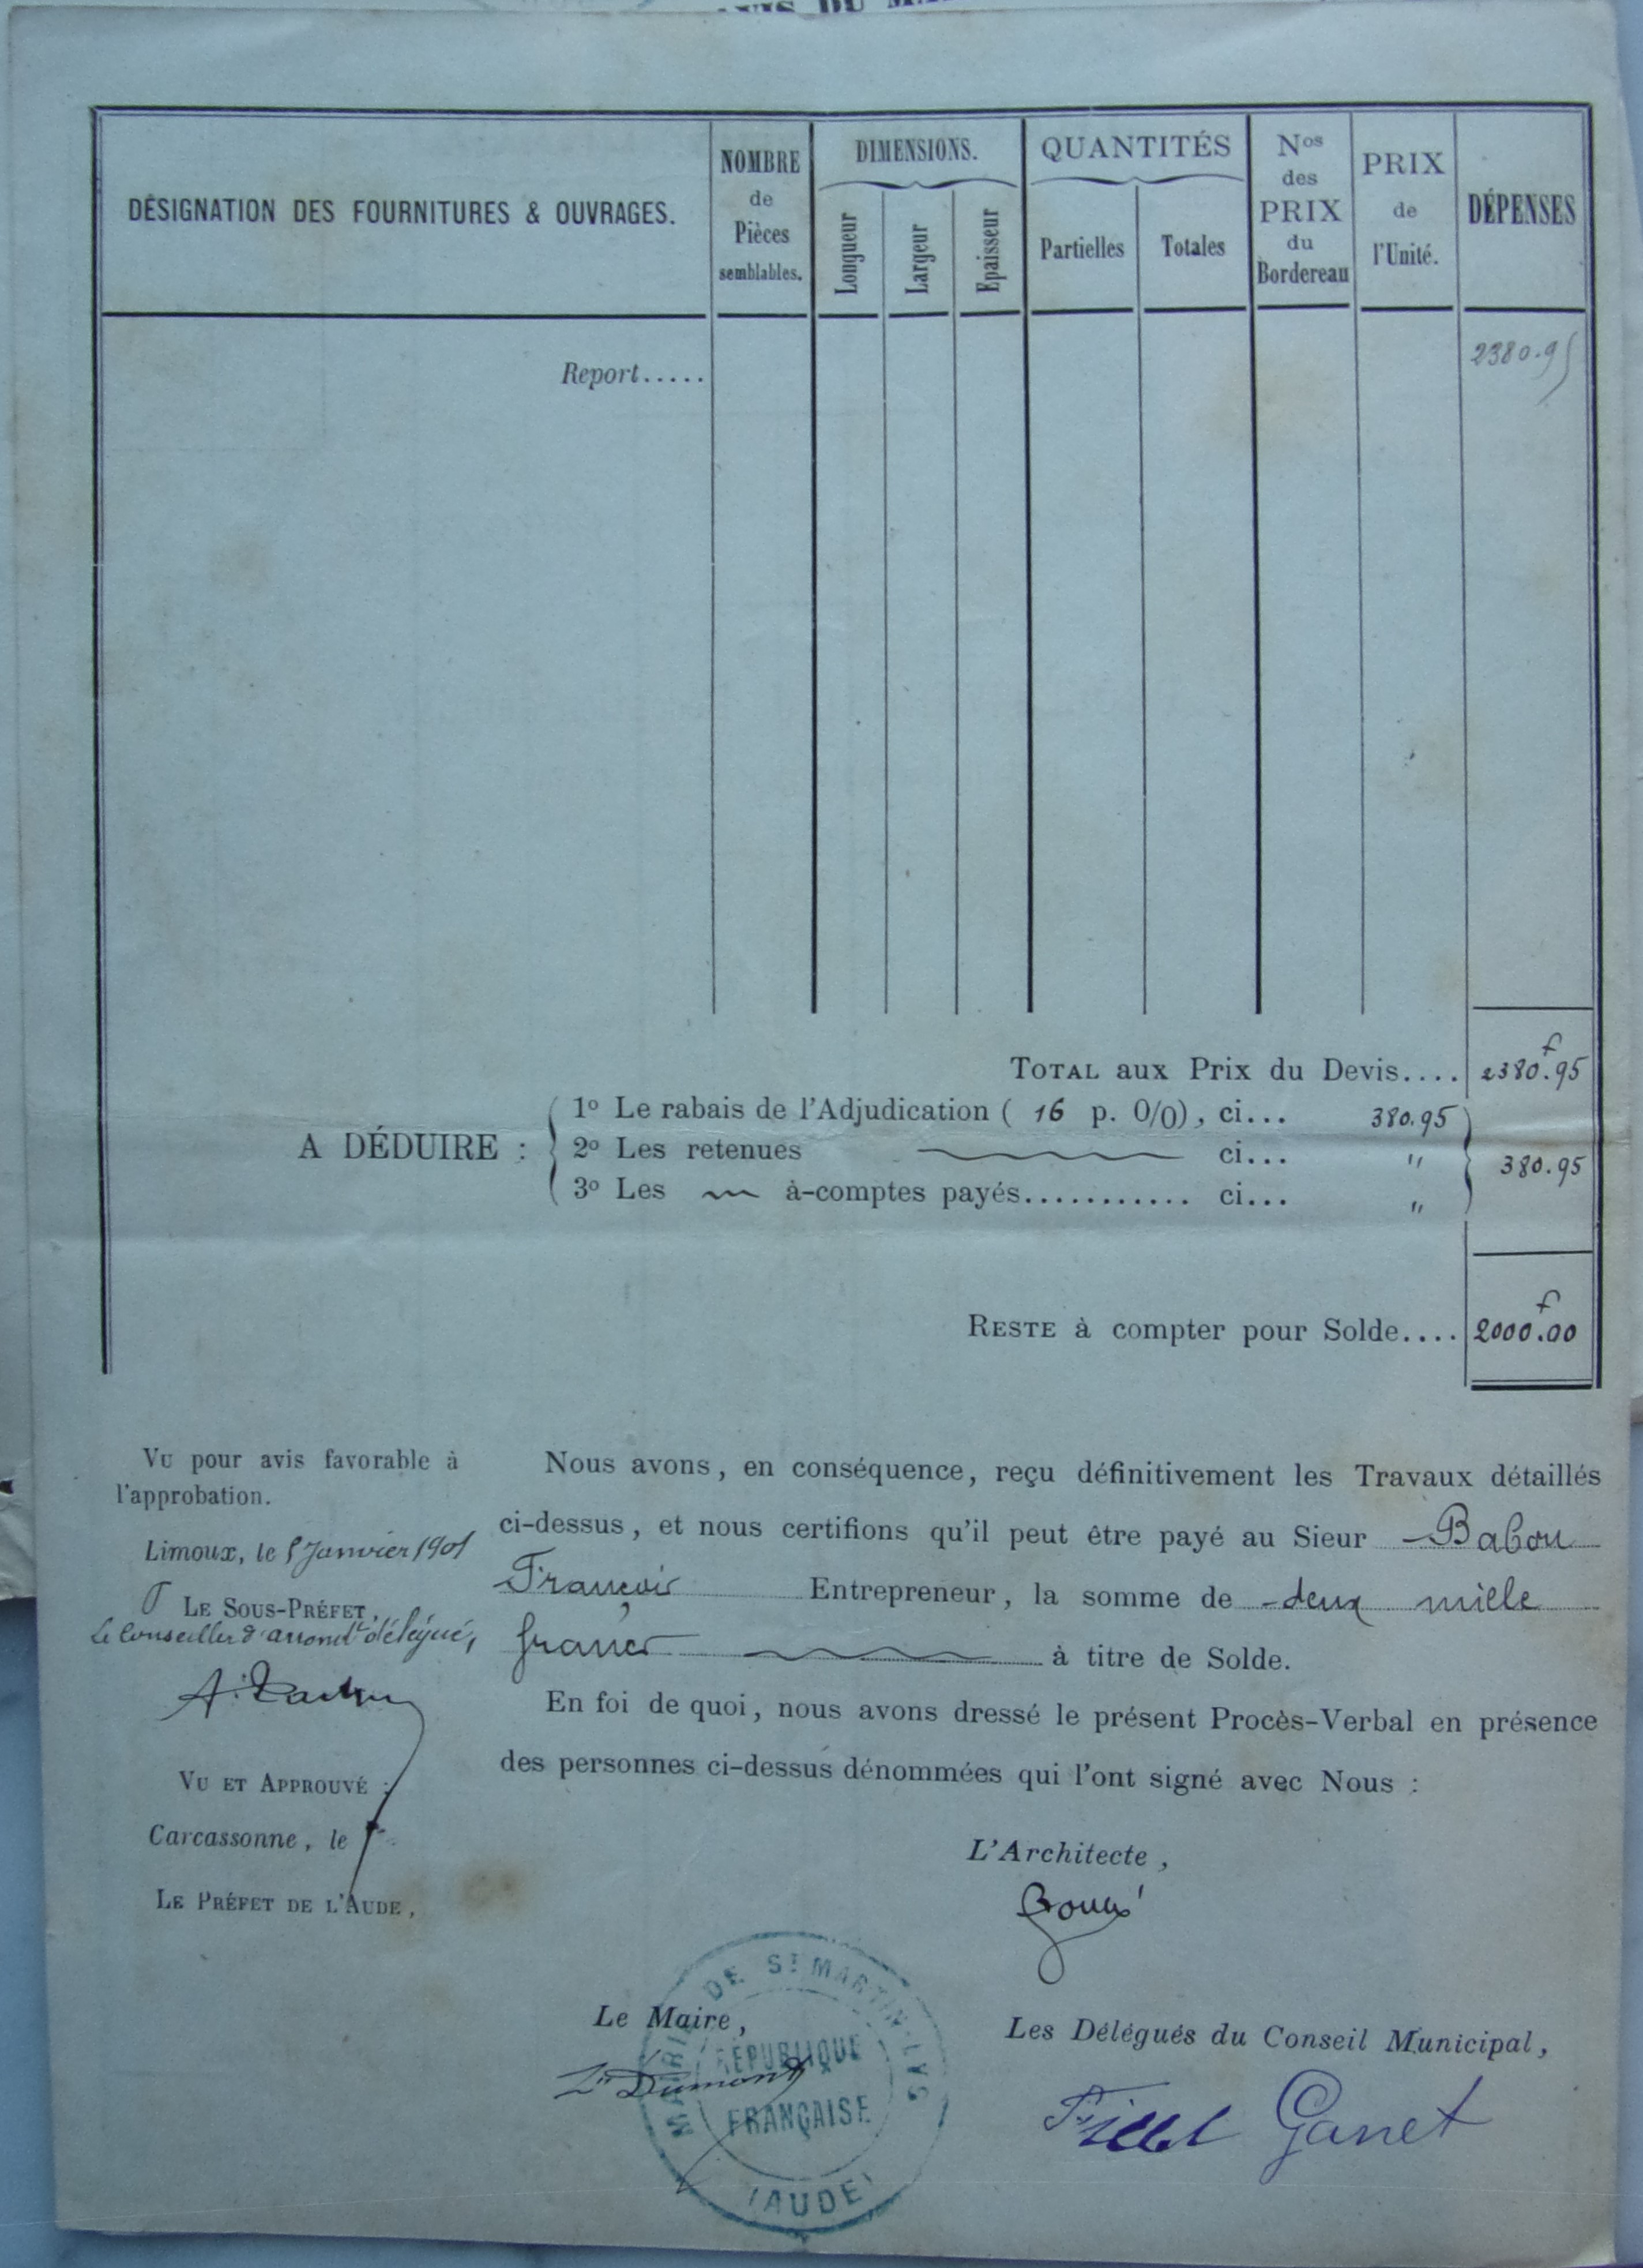 DÉSIGNATION DES FOURNITURES & OUVRAGES.
NOMBRE
de
Pièces
semblables.
DIMENSIONS.
Longueur
Largeur
Epaisseur
QUANTITÉS
Partielles
Totales
Nos
des
PRIX
du
Bordereau
PRIX
de
l'Unité.
DÉPENSES
Report..... 2380.95
TOTAL aux Prix du Devis.... 2380.95 f
A DÉDUIRE :
1o Le rabais de l'Adjudication ( 16 p. 0/0), ci... 380.95
2o Les retenues ci... "
3o Les à-comptes payés........... ci... "
380.95
RESTE à compter pour Solde.... 2000.00 f
VU pour avis favorable à
l'approbation.
Limoux, le 5 Janvier 1901
LE SOUS-PRÉFET,
Le Conseiller d'arrondt délégué,
VU ET APPROUVÉ :
Carcassonne, le
LE PRÉFET DE L'AUDE,
Nous avons, en conséquence, reçu définitivement les Travaux détaillés
ci-dessus, et nous certifions qu'il peut être payé au Sieur Babou
François Entrepreneur, la somme de deux mille
francs à titre de Solde.
En foi de quoi, nous avons dressé le présent Procès-Verbal en présence
des personnes ci-dessus dénommées qui l'ont signé avec Nous :
L'Architecte,
Le Maire,
Dumons
MAIRIE DE ST MARTIN-LYS
RÉPUBLIQUE
FRANÇAISE
(AUDE)
Les Délégués du Conseil Municipal,
Ganet